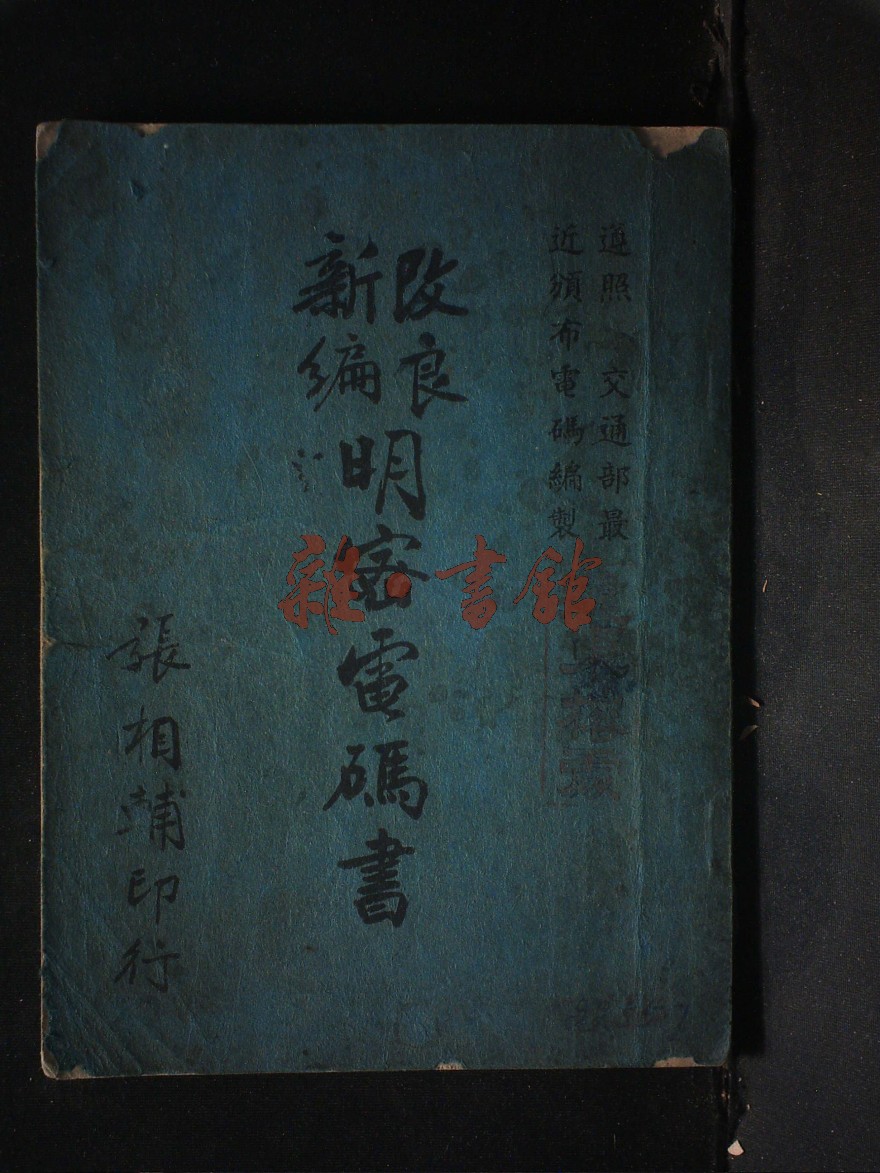 遵照 交通部最
近頒布電碼編製
改良
新編
明密電碼書
張相輔印行
雜·書館